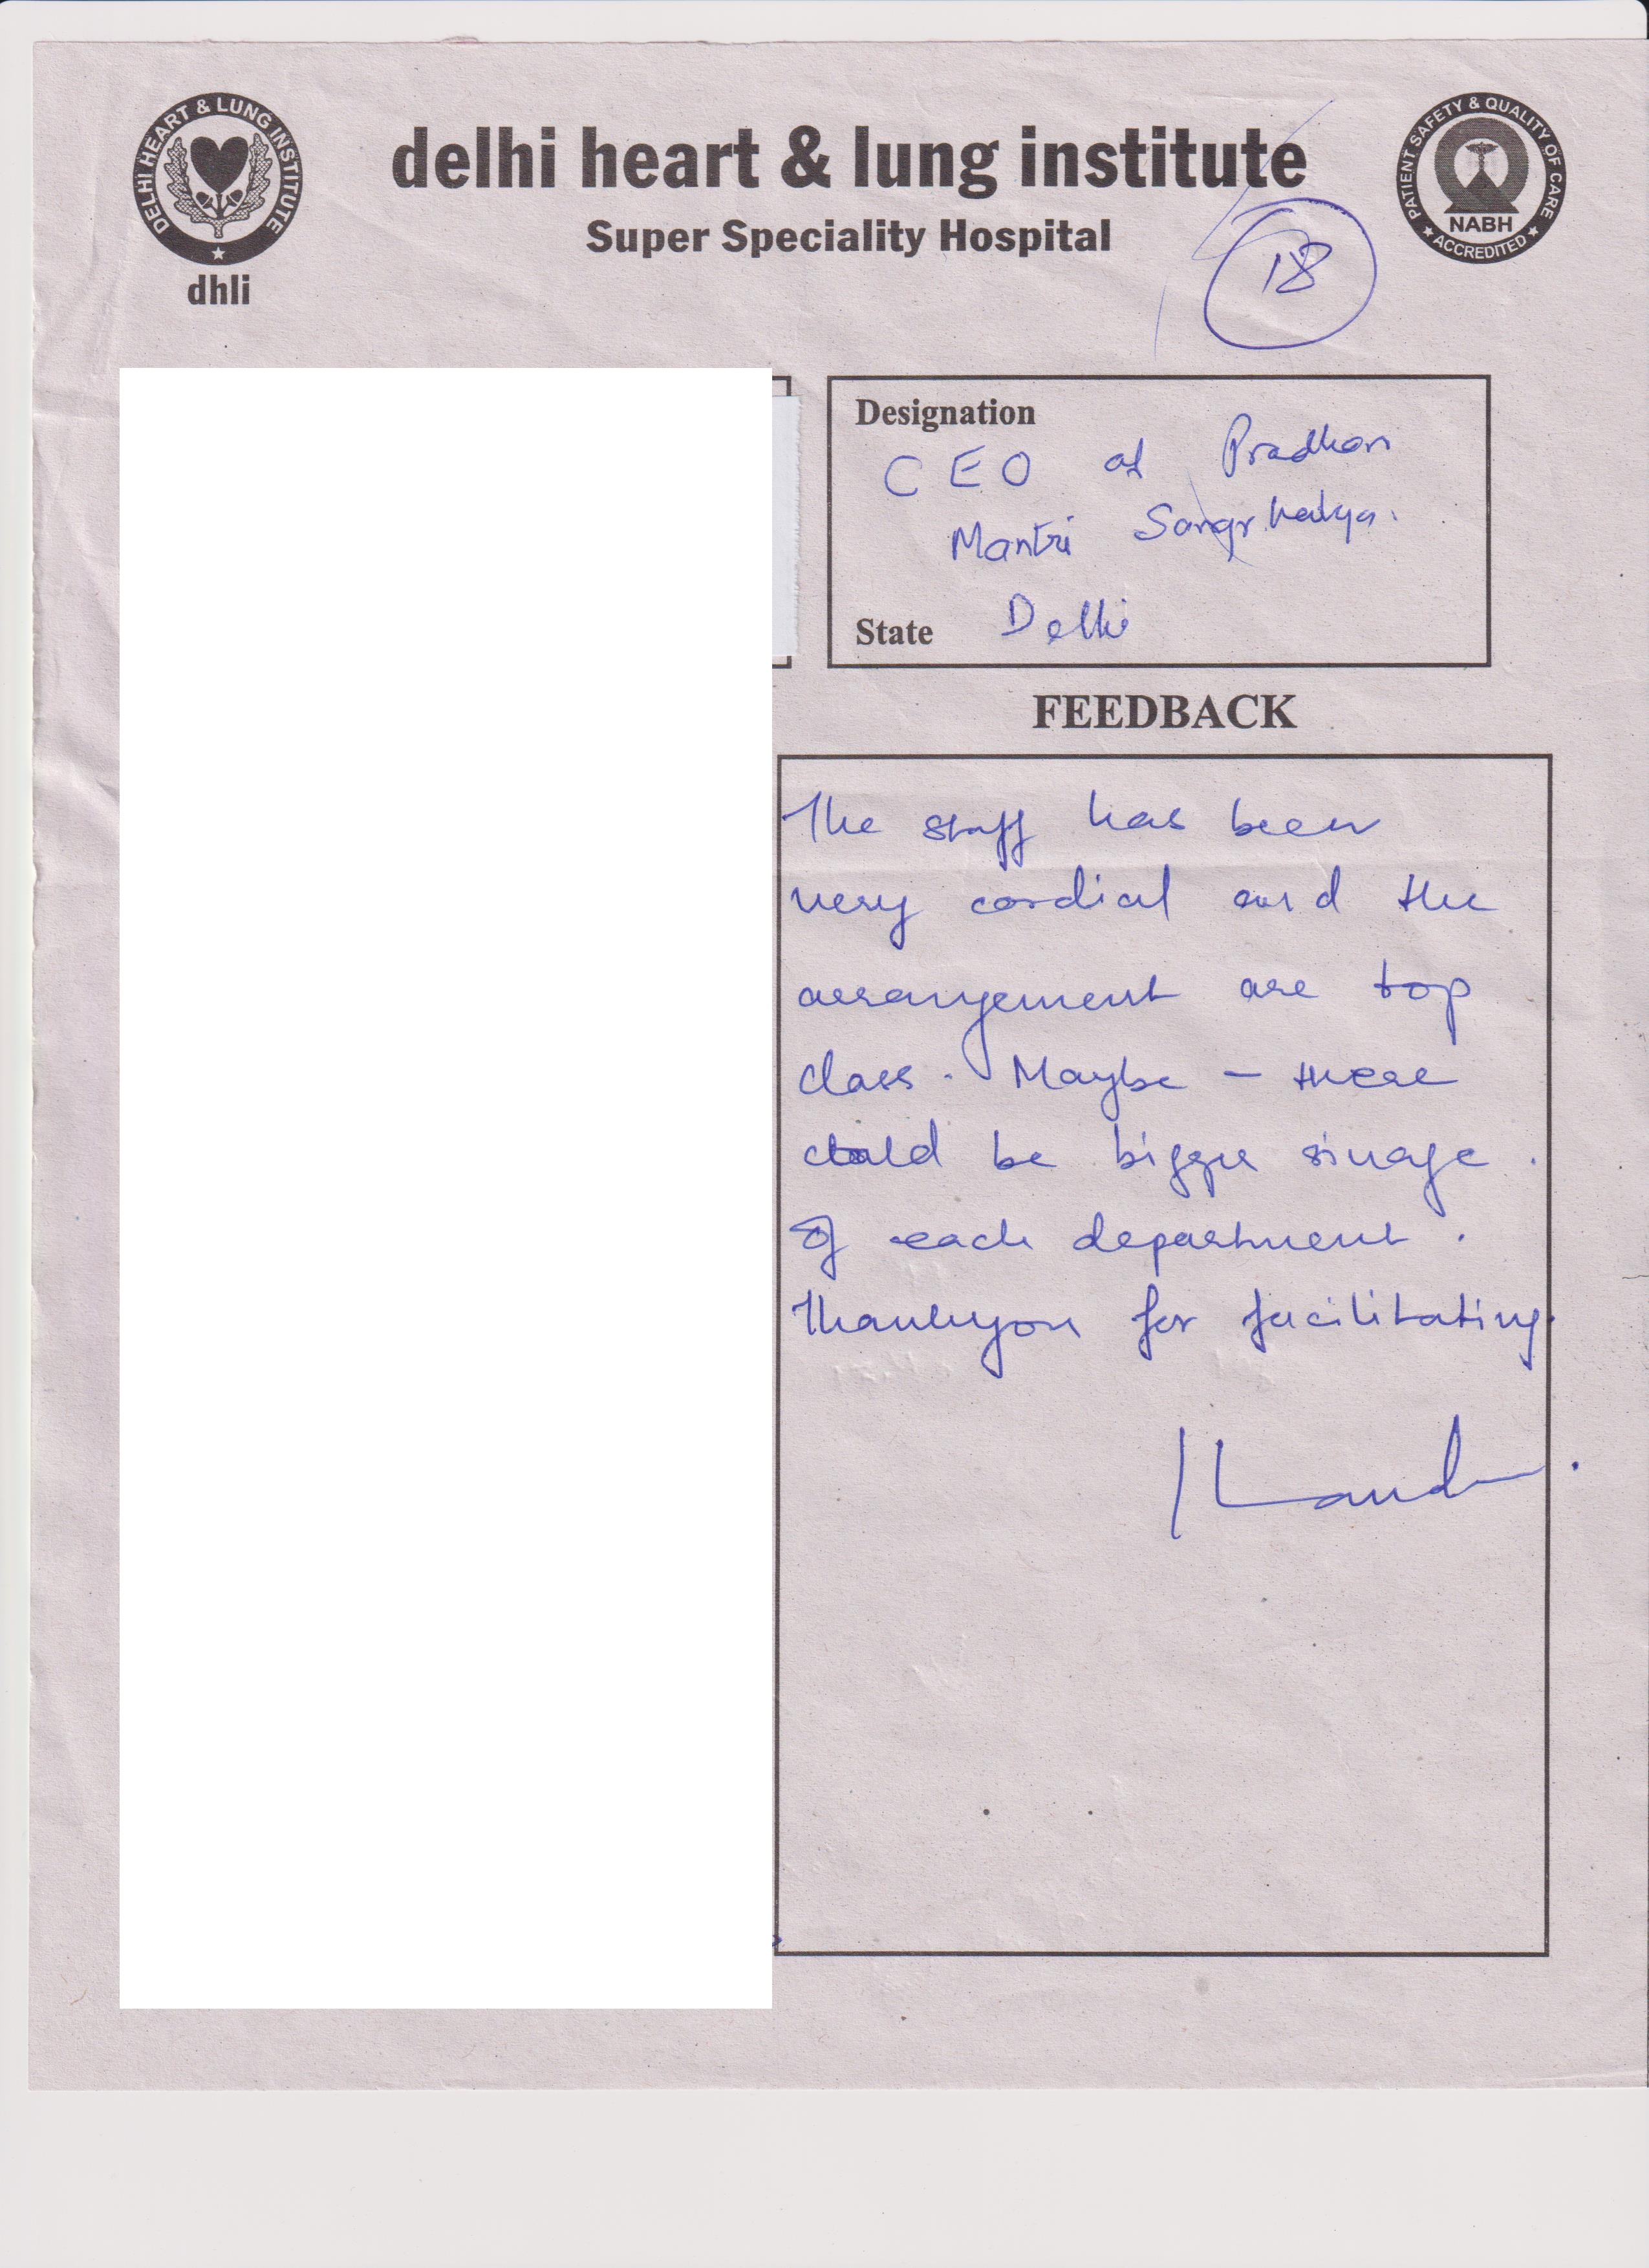 DELHI HEART & LUNG INSTITUTE
dhli
delhi heart & lung institute
Super Speciality Hospital
PATIENT SAFETY & QUALITY OF CARE
NABH
ACCREDITED
18
Designation
CEO of Pradhan
Mantri
State Delhi
FEEDBACK
The staff has been
very cordial and the
arrangement are top
class. Maybe - there
could be bigger sinage
of each department.
Thankyou for facilitating.